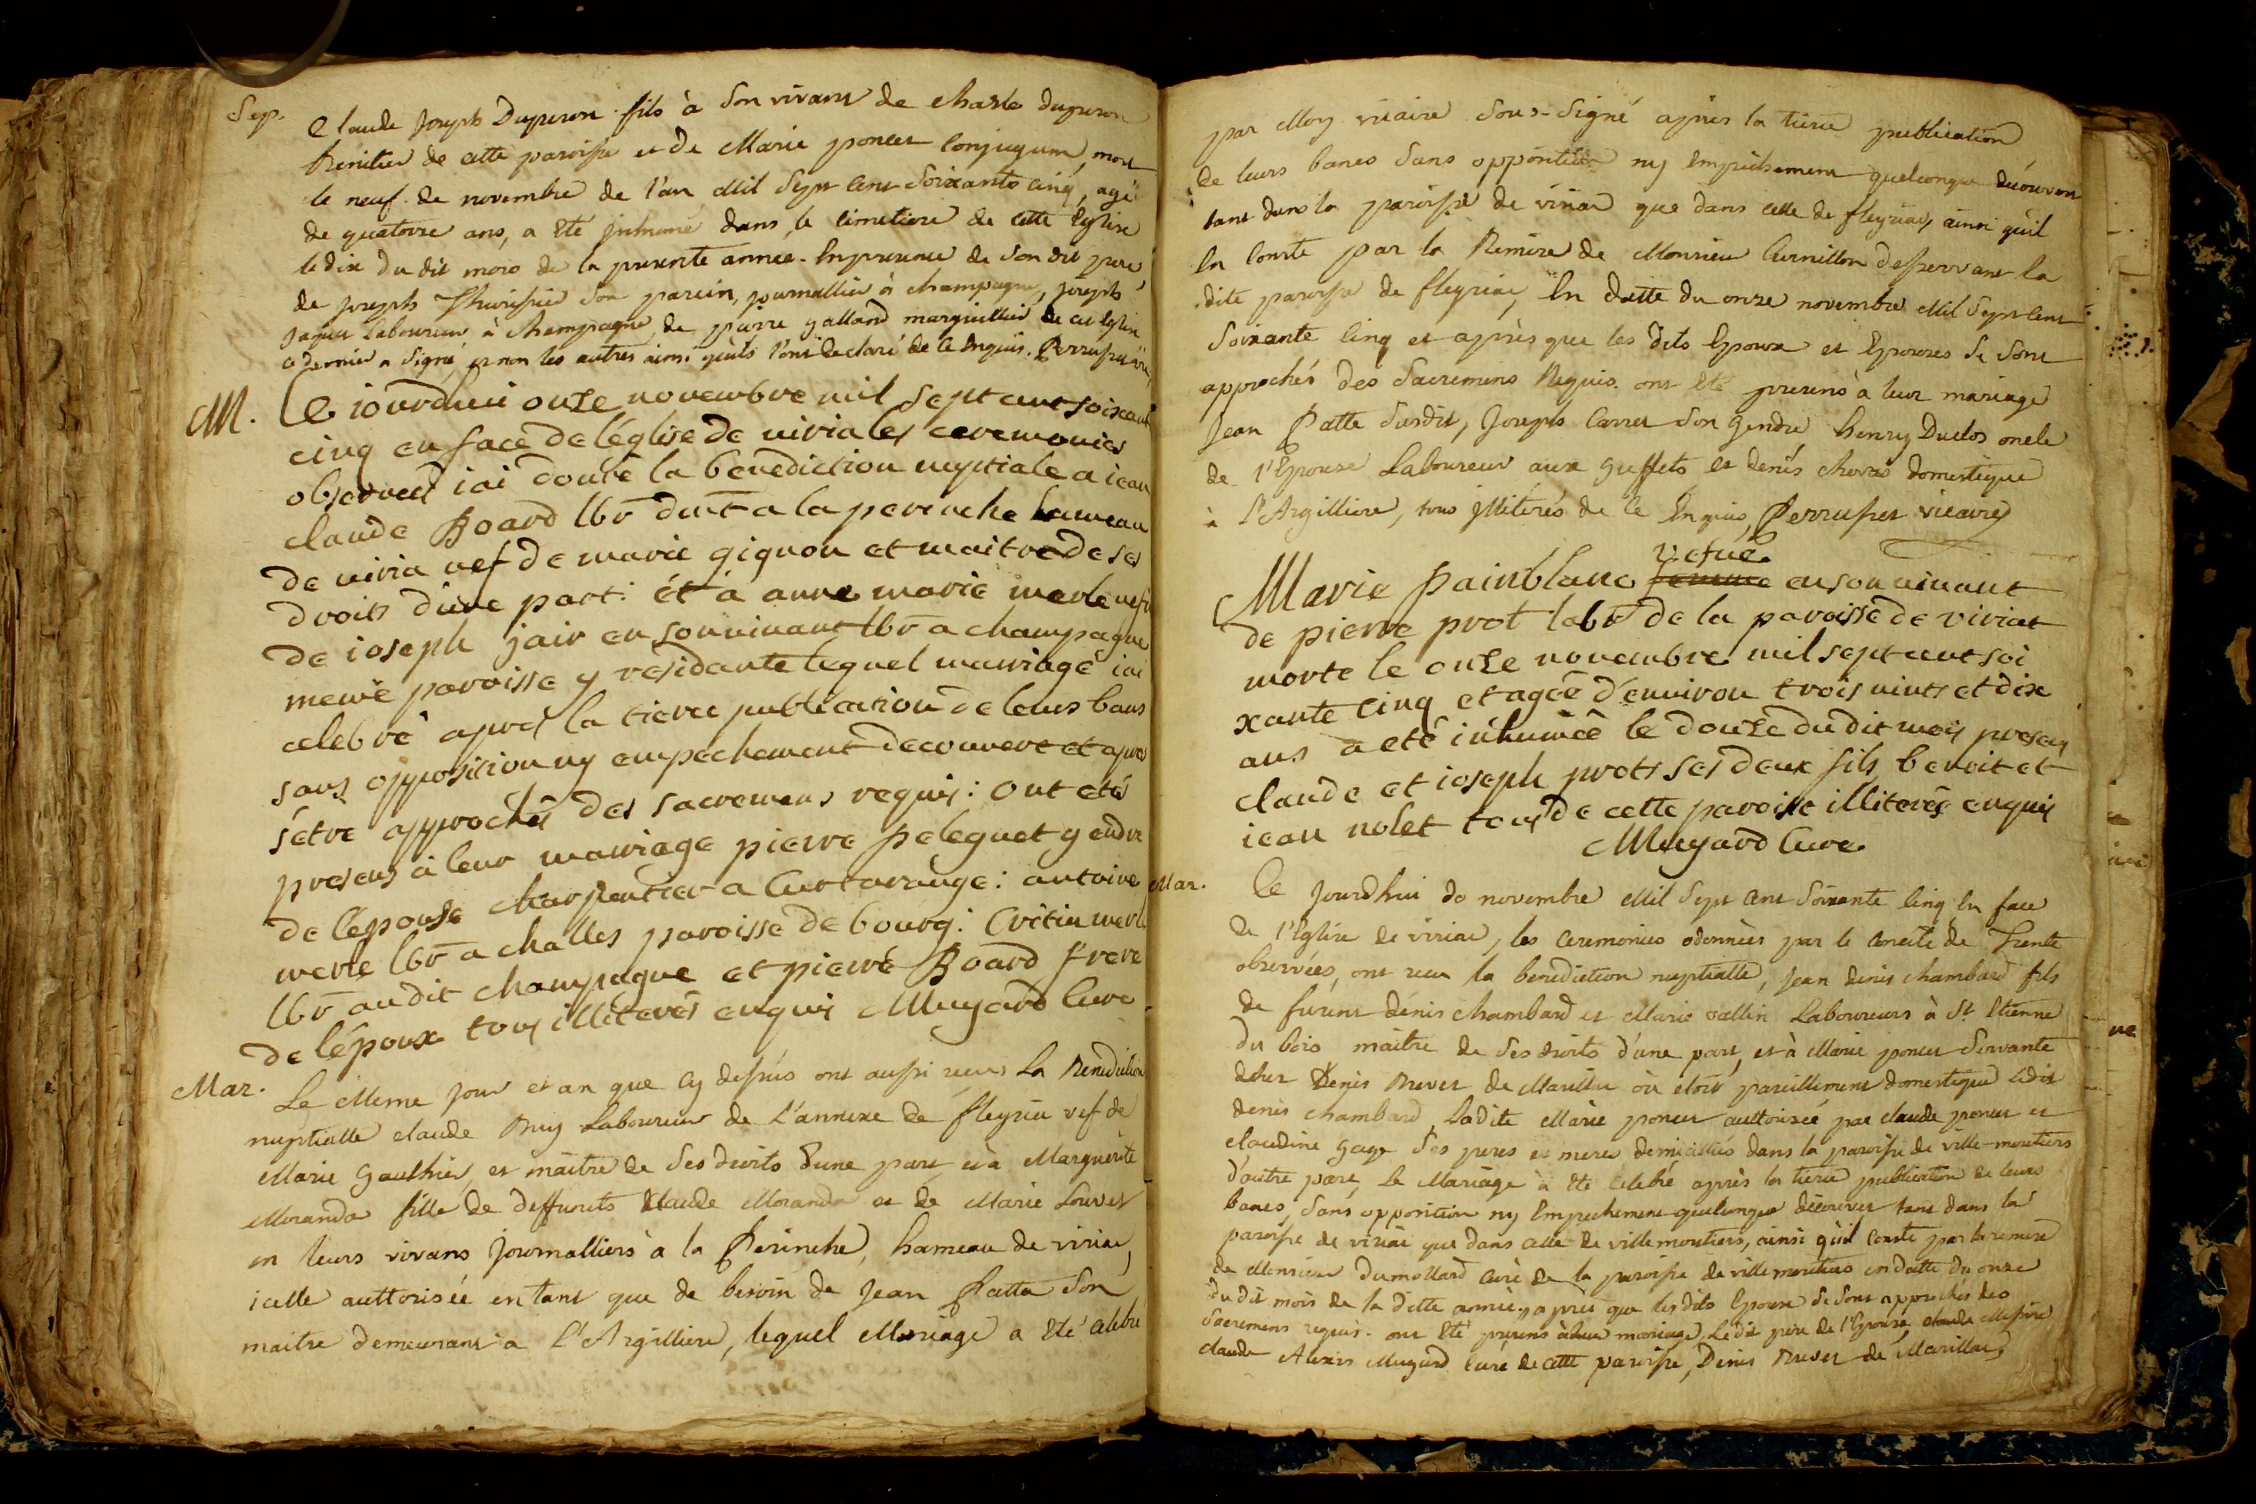 Sep. Claude Joseph Duperon fils à son vivant de Charle duperon
Benitier de cette paroisse et de Marie poncet conjugum, mort
le neuf de novembre de l'an Mil Sept Cent Soixante cinq, agé
de quatorze ans, a été inhumé dans le cimetiere de cette Eglise
le dix du dit mois de la presente année. En presence de son dit pere
de joseph son parein, journallier à champagne, joseph
Laboureur à Champagne, de pierre galland marguillier de cet Eglise
ce dernier a signé, et non les autres ainsi qu'ils l'ont declaré de ce Enquis.
M. Ce iourdhui onze novembre mil sept cent soixant
cinq en face de l'église de viria les ceremonies
observeés iai donné la benediction nuptiale a iean
claude Board lbr dmt a la perinche hameau
de viria vef de marie gignon et maitre de ses
droits d'une part: ét á anne marie merle vefve
de ioseph jair en son vivant lbr a champagne
meme paroisse y residante lequel mariage iai
celebré apres la tierce publication de leurs bans
sans opposition ny empechement decouvert et apres
s'étre approchés des sacremens requis: ont etés
presens à leur mariage pierre peleguet gendre
de l'épouse charpentier a Curtarange: antoine
merle lbr a challes paroisse de bourg: Critin merle
lbr au dit champagne et pierre Board frere
de l'époux tous illiterés enquis Mugard Cure
Mar. Le Meme jour et an que cy dessus ont aussi reçu La Benediction
nuptialle claude Buy Laboureur de L'annexe de fleyria vef de
Marie Gauthier, et maitre de ses droits d'une part et à Marguerite
Moranda fille de deffunts Claude Moranda et de Marie Louvet
en leurs vivans Journalliers à la Perinche, hameau de viria,
icelle auttorisée en tant que de besoin de Jean Patta son
maitre demeurant à L'Argilliere, lequel Mariage a été célébré
par Moy vicaire sous-signé après la tierce publication
de leurs bancs sans opposition ny Empechement quelconque découvert
tant dans la paroisse de viriac que dans celle de fleyriac, ainsi qu'il
En Conste par la Remise de Monsieur desservant la
dite paroisse de fleyriac, En datte du onze novembre Mil Sept Cent
Soixante Cinq et après que les dits Epoux et Epouses se sont
approchés des Sacremens Requis. ont été presens à leur mariage
Jean Patte susdit, Joseph Carret son gendre, henry Duclos oncle
de l'Epouse Laboureur aux Greffets et denis domestique
à l'Argilliere, tous illiterés de ce Enquis, Perruset vicaire
vefue
Marie painblanc femme en son vivant
de pierre prot labr de la paroisse de viriat
morte le onze novembre mil sept cent soi
xante cinq et agée d'environ trois vints et dix
ans a eté inhumée le douze du dit mois presens
claude et ioseph prots ses deux fils benoit et
iean nolet tous de cette paroisse illiterés enquis
Mugard Cure
Mar. Ce Jourdhui 30 novembre Mil Sept Cent Soixante Cinq En face
de l'Eglise de viriac, les Ceremonies odonnées par le Concile de Trente
observées, ont reçu la benediction nuptialle, Jean denis chambard fils
de furent dénis chambard et Marie vallin Laboureurs à St Etienne
du bois maitre de ses droits d'une part, et à Marie poncet Servante
chez Denis Buvet de Marillia où etoit pareillement domestique ledit
denis chambard, Ladite Marie poncet auttorisée par claude poncet et
claudine gage ses peres et meres domicilliés dans la paroisse de ville-moutiers
d'autre part, Le Mariage à été célébré après la tierce publication de leurs
bancs, sans opposition ny Empechement quelconque découvert tant dans la
paroisse de viriac que dans celle de villemoutiers, ainsi qu'il Conste par la remise
de Monsieur Dumollard curé de la paroisse de villemoutiers en datte du onze
du dit mois de la dite année, après que les dits Epoux se sont approchés des
Sacremens requis. ont été presens à leur mariage, Le dit père de l'Epouse, claude Messire
claude Mugard curé de cette paroisse, Denis Buvet de Marillac,